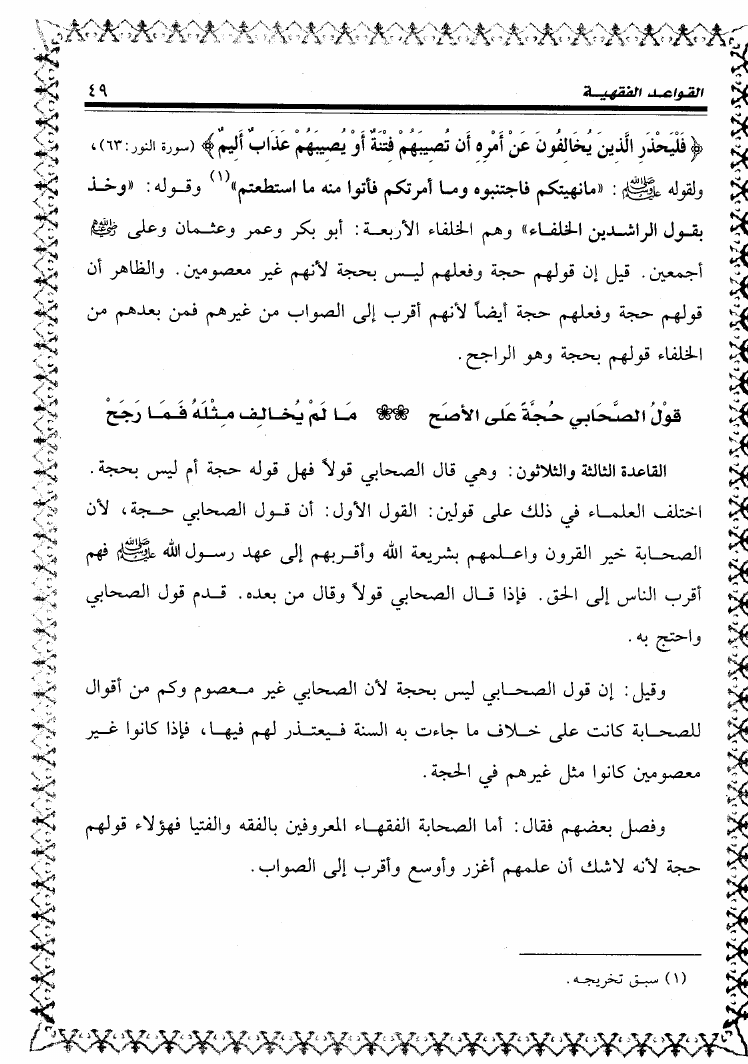 القواعد الفقهية
٤٩
﴿ فَلْيَحْذَرِ الَّذِينَ يُخَالِفُونَ عَنْ أَمْرِهِ أَن تُصِيبَهُمْ فِتْنَةٌ أَوْ يُصِيبَهُمْ عَذَابٌ أَلِيمٌ ﴾ (سورة النور: ٦٣)،
ولقوله ﷺ : «مانهيتكم فاجتنبوه وما أمرتكم فأتوا منه ما استطعتم»(١) وقوله: «وخذ
بقول الراشدين الخلفاء» وهم الخلفاء الأربعة: أبو بكر وعمر وعثمان وعلى رضي الله عنهم
أجمعين. قيل إن قولهم حجة وفعلهم ليس بحجة لأنهم غير معصومين. والظاهر أن
قولهم حجة وفعلهم حجة أيضاً لأنهم أقرب إلى الصواب من غيرهم فمن بعدهم من
الخلفاء قولهم بحجة وهو الراجح.
قوْلُ الصَّحَابي حُجَّةً عَلى الأصَح ❀❀ مَا لَمْ يُخالِف مِثْلَهُ فَمَا رَجَحْ
القاعدة الثالثة والثلاثون: وهي قال الصحابي قولاً فهل قوله حجة أم ليس بحجة.
اختلف العلماء في ذلك على قولين: القول الأول: أن قول الصحابي حجة، لأن
الصحابة خير القرون واعلمهم بشريعة الله وأقربهم إلى عهد رسول الله ﷺ فهم
أقرب الناس إلى الحق. فإذا قال الصحابي قولاً وقال من بعده. قدم قول الصحابي
واحتج به.
وقيل: إن قول الصحابي ليس بحجة لأن الصحابي غير معصوم وكم من أقوال
للصحابة كانت على خلاف ما جاءت به السنة فيعتذر لهم فيها، فإذا كانوا غير
معصومين كانوا مثل غيرهم في الحجة.
وفصل بعضهم فقال: أما الصحابة الفقهاء المعروفين بالفقه والفتيا فهؤلاء قولهم
حجة لأنه لاشك أن علمهم أغزر وأوسع وأقرب إلى الصواب.
(١) سبق تخريجه.